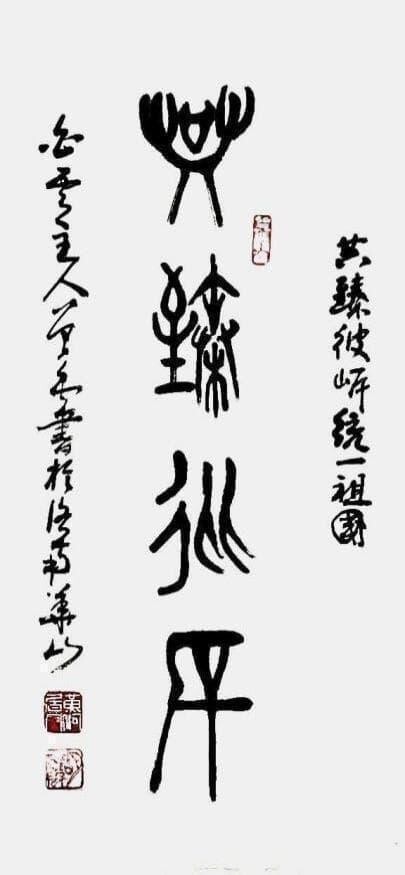 共臻彼岸統一祖國
共臻彼岸
主人書於洛南華山